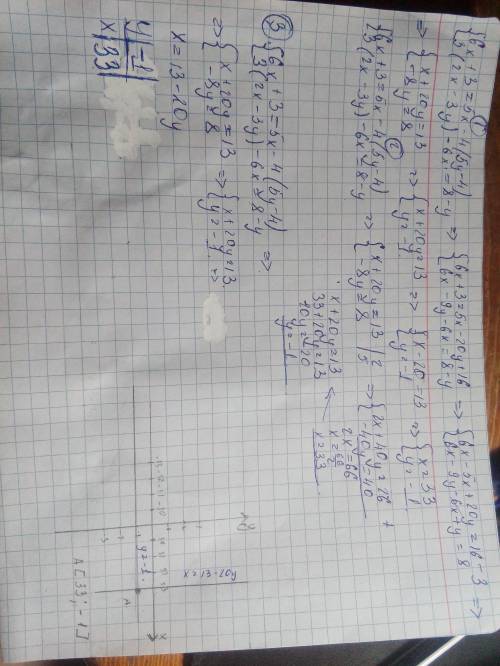 ① {6x+3=5x-4(5y-4)
{3(2x-3y)-6x=8-y ⇒ {6x+3=5x-20y+16
{6x-9y-6x=8-y ⇒ {6x-5x+20y=16-3
{6x-9y-6x+y=8 ⇒
⇒ {x+20y=13
{-8y=8 ⇒ {x+20y=13
{y=-1 ⇒ {x-20=13
{y=-1 ⇒ {x=33
{y=-1
②
{6x+3=5x-4(5y-4)
{3(2x-3y)-6x=8-y ⇒ {x+20y=13 |2
{-8y=8 |5 ⇒ {2x+40y=26 +
{-40y=40
2x=66
x=66/2
x=33
x+20y=13
33+20y=13
20y=-20
y=-1
③ {6x+3=5x-4(5y-4)
{3(2x-3y)-6x=8-y ⇒
⇒ {x+20y=13
{-8y=8 ⇒ {x+20y=13
{y=-1 ⇒
x=13-20y
y | -1
x | 33
y=-1
x=13-20y
A
x
A[33;-1]